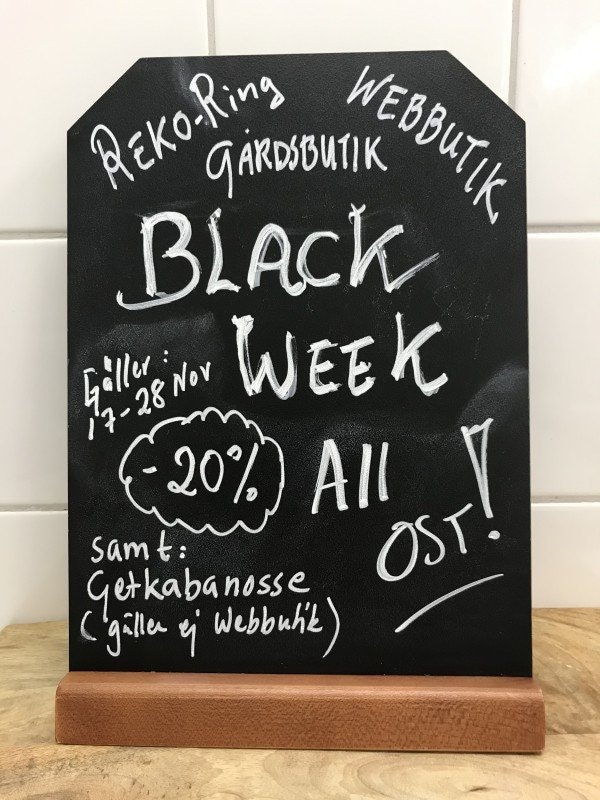 REKO-Ring
WEBBUTIK
GÅRDSBUTIK
BLACK
WEEK
Gäller:
17-28 Nov
-20%
All
OST!
samt:
Getkabanosse
(gäller ej Webbutik)